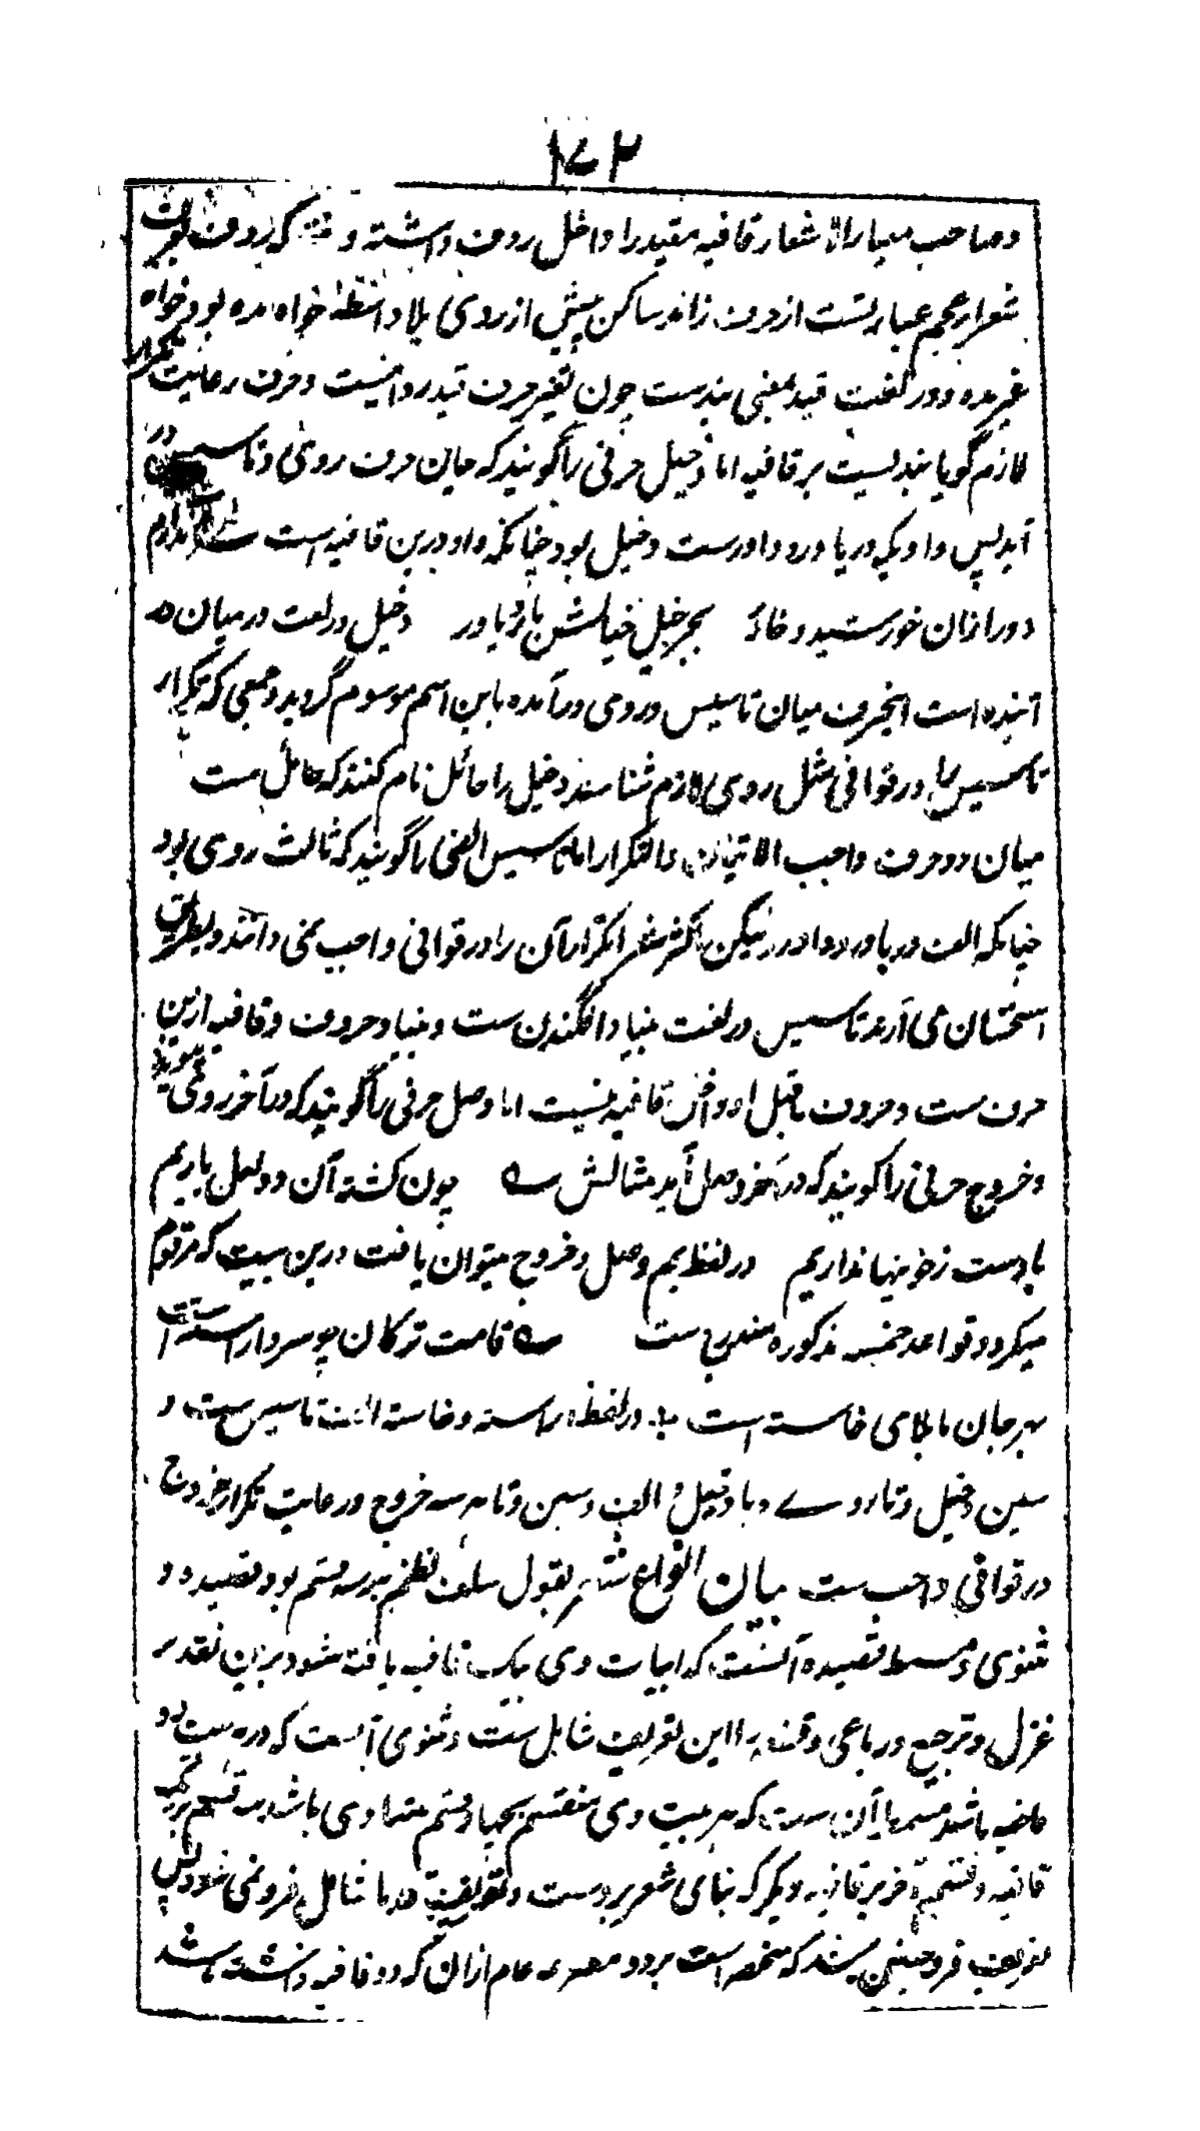 ۱۷۲
و صاحب معیار الاشعار قافیه مقید را داخل ردف داشته و گفته که ردف بعرف
شعرای عجم عبارتست از حرف زائد ساکن پیش از روی بلا واسطه خواه مده بود خواه
غیر مده و در لغت قید بمعنی بندست چون تغیر حرف قید روا نیست و حرف رعایت تکرار
لازم گویا بندیست بر قافیه اما دخیل حرفی را گویند که میان حرف روی و تاسیس در
آید پس واویکه در یاور و داورست دخیل بود چنانکه واو درین قافیه است ندارم
دور ازان خورشید رخ بجز خیل خیالش یار و یاور دخیل در لغت در میان در
آینده است اینحرف میان تاسیس و روی در آمده باین اسم موسوم گردید و جمعی که تکرار
تاسیس را در قوافی مثل روی لازم شناسند دخیل را حائل نام کنند که حائل است
میان دو حرف واجب الاتیان والتکرار اما تاسیس الفی را گویند که ثالث روی بود
چنانکه الف در یاور و داور لیکن اکثر شعرا تکرار آن را در قوافی واجب نمی دانند و بطریق
استحسان می آرند تاسیس در لغت بنیاد افگندن ست و بنیاد حروف قافیه ازین
حرف ست و حروف ماقبل او داخل قافیه نیست اما وصل حرفی را گویند که در آخر روی پیوندد
و خروج حرفی را گویند که در آخر وصل آید مثالش چون کشته آن دو لعل یاریم
یا دست ز خونبها نداریم در لفظ یم وصل و خروج میتوان یافت درین بیت که مرقوم
میگردد قواعد خمسه مذکوره مندرج ست قامت ترکان چو سرو آراسته است
بهر جان ما بلای خاسته است در لفظ راسته و خاسته الف تاسیس ست و
سین دخیل و تا روے و ها وصل و الف و سین و تا هر سه خروج و رعایت تکرار خروج
در قوافی واجب ست بیان انواع شعر بقول سلف نظم بر سه قسم بود قصیده و
مثنوی و مسمط قصیده آنست که ابیات وی بیک قافیه یافته شود برین تقدیر
غزل و ترجیع و رباعی و قطعه را این تعریف شامل ست و مثنوی آنست که در هر بیت دو
قافیه باشد مسمط آن ست که هر بیت وی منقسم بچهار قسم متساوی باشد سه قسم بر یک
قافیه و قسم آخر بر قافیه دیگر که بنای شعر بروست و تعریف قدما شامل فرد نمی شود پس
تعریف فرد چنین کنند که منحصر است بر دو مصرعه عام ازان که دو قافیه داشته باشد